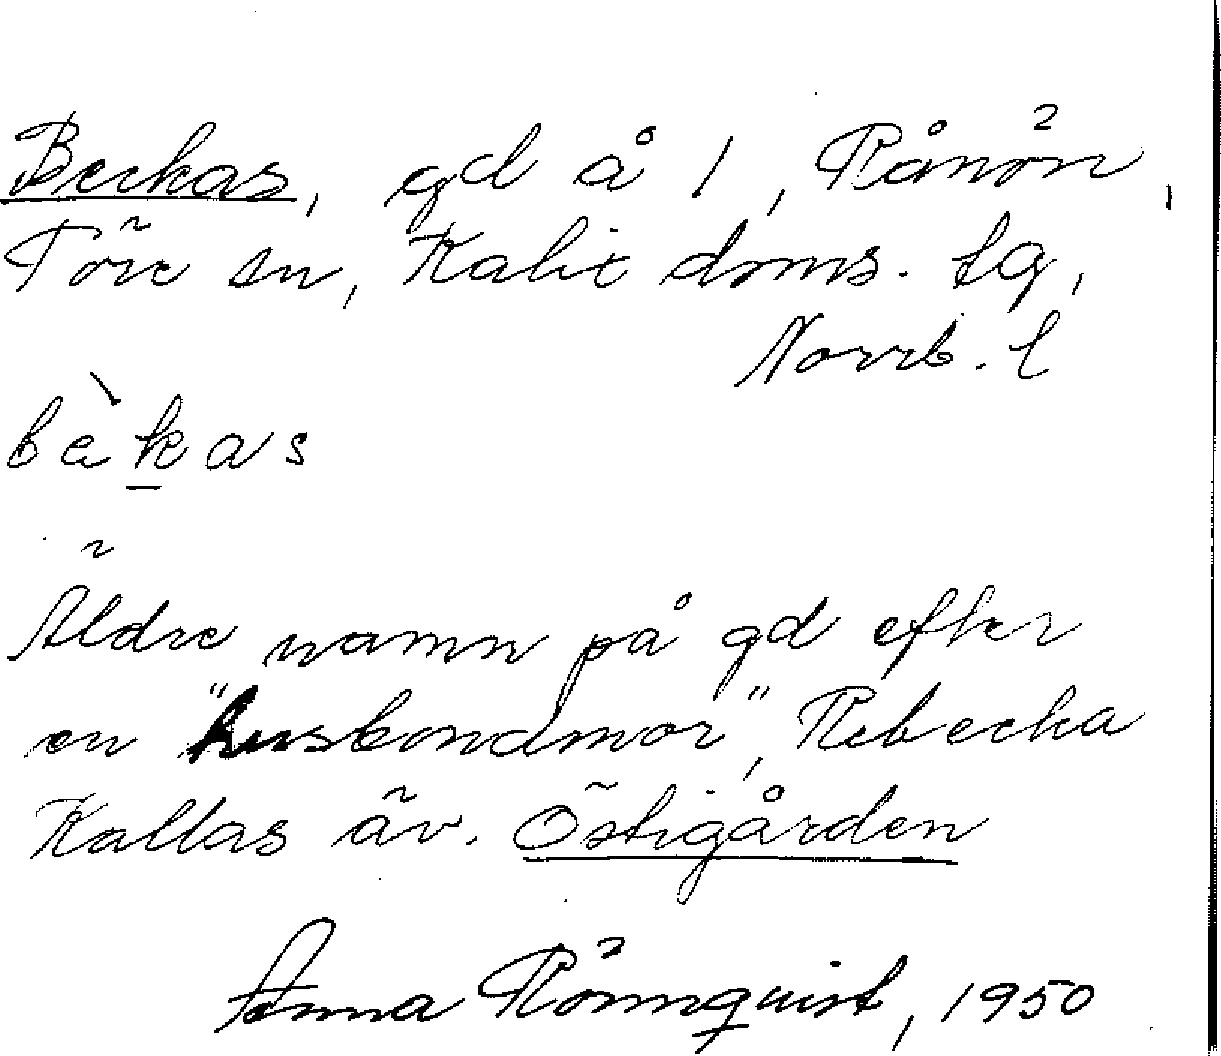 Beckas, gd å 1, Rånön,
Töre sn, Kalix doms. tg,
Norrb. l
bèkas
Äldre namn på gd efter
en "husbondmor", Rebecka
Kallas äv. Östigården
Anna Rönnquist, 1950